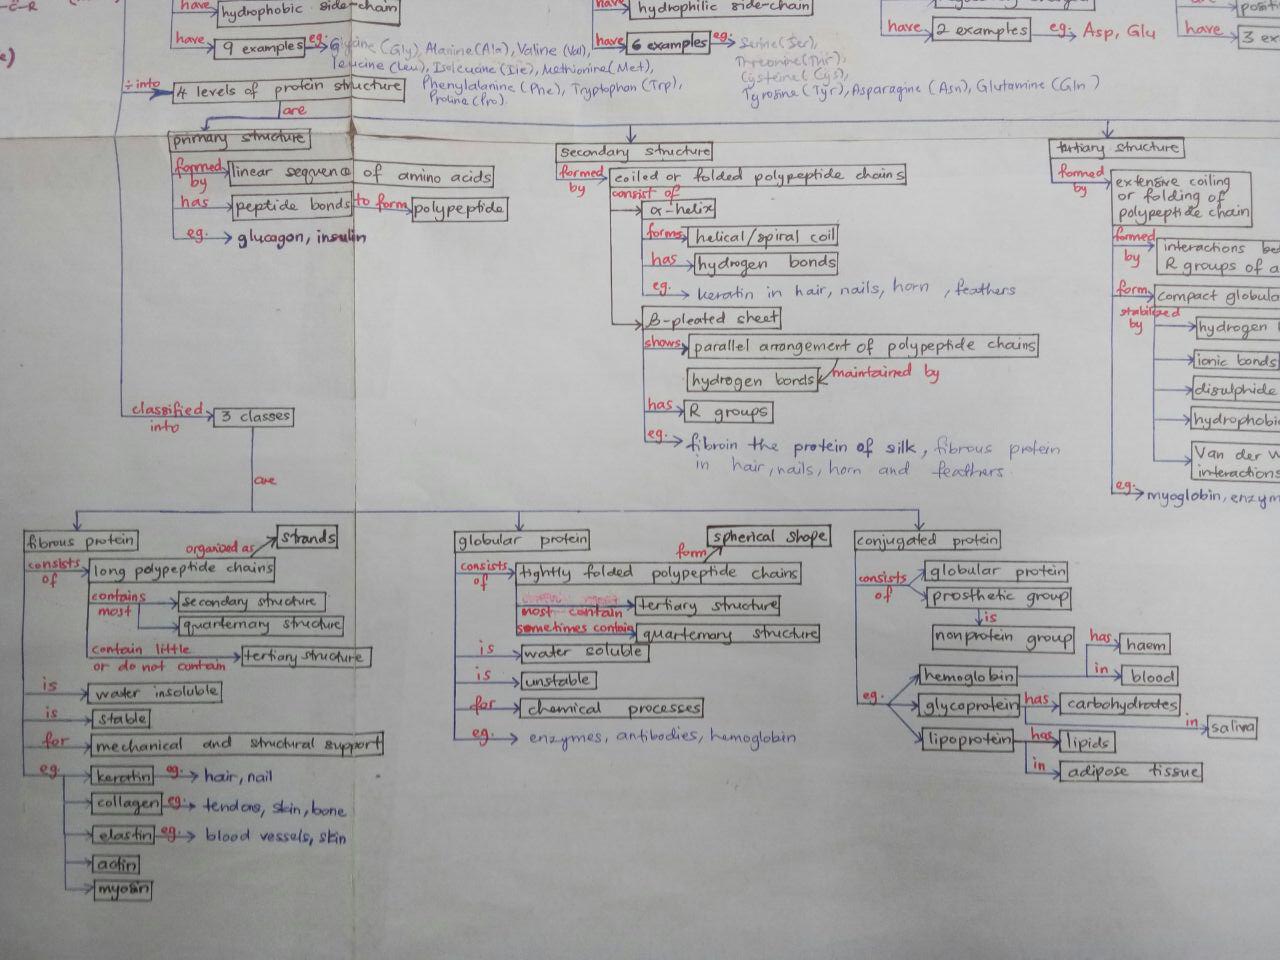 C-R
have
hydrophobic side-chain
have
hydrophilic side-chain
have
have
9 examples
eg.
Glycine (Gly), Alanine (Ala), Valine (Val),
Leucine (Leu), Isoleucine (Ile), Methionine (Met),
Phenylalanine (Phe), Tryptophan (Trp),
Proline (Pro).
have
6 examples
eg.
Serine (Ser),
Threonine (Thr),
Cysteine (Cys),
Tyrosine (Tyr), Asparagine (Asn), Glutamine (Gln)
have
2 examples
eg.
Asp, Glu
have
÷ into
4 levels of protein structure
are
primary structure
formed
by
linear sequence of amino acids
has
peptide bonds
to form
polypeptide
eg.
glucagon, insulin
secondary structure
formed
by
coiled or folded polypeptide chains
consist of
α-helix
forms
helical/spiral coil
has
hydrogen bonds
eg.
keratin in hair, nails, horn, feathers
β-pleated sheet
shows
parallel arrangement of polypeptide chains
maintained by
hydrogen bonds
has
R groups
eg.
fibroin the protein of silk, fibrous protein
in hair, nails, horn and feathers.
tertiary structure
formed
by
extensive coiling
or folding of
polypeptide chain
formed
by
interactions
R groups of
form
compact
stabilized
by
hydrogen
ionic bonds
disulphide
Van der
interactions
eg.
myoglobin,
classified
into
3 classes
are
fibrous protein
consists
of
long polypeptide chains
organised as
strands
contains
most
secondary structure
quarternary structure
contain little
or do not contain
tertiary structure
is
water insoluble
is
stable
for
mechanical and structural support
eg.
keratin
eg.
hair, nail
collagen
eg.
tendons, skin, bone
elastin
eg.
blood vessels, skin
actin
myosin
globular protein
consists
of
tightly folded polypeptide chains
form
spherical shape
most contain
tertiary structure
sometimes contain
quarternary structure
is
water soluble
is
unstable
for
chemical processes
eg.
enzymes, antibodies, hemoglobin
conjugated protein
consists
of
globular protein
prosthetic group
is
nonprotein group
eg.
hemoglobin
has
haem
in
blood
glycoprotein
has
carbohydrates
in
saliva
lipoprotein
has
lipids
in
adipose tissue